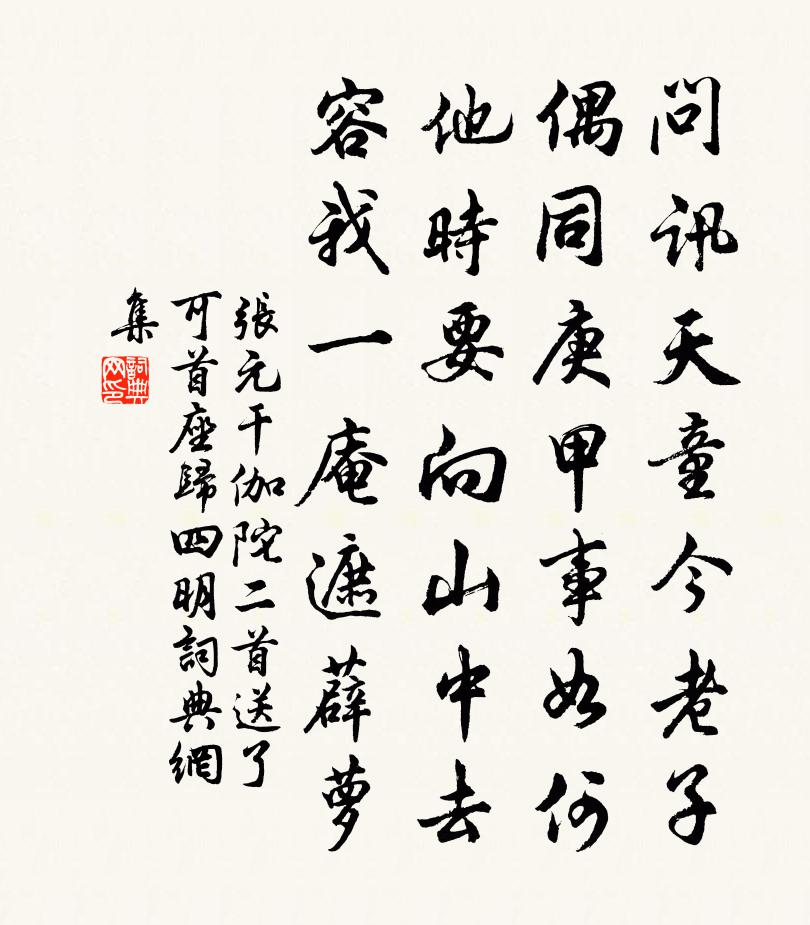 問訊天童今老子
偶同庚甲事如何
他時要向山中去
容我一庵遮薜萝
張元干伽陀二首送了
可首座歸四明詞典網
集
詞典
网印